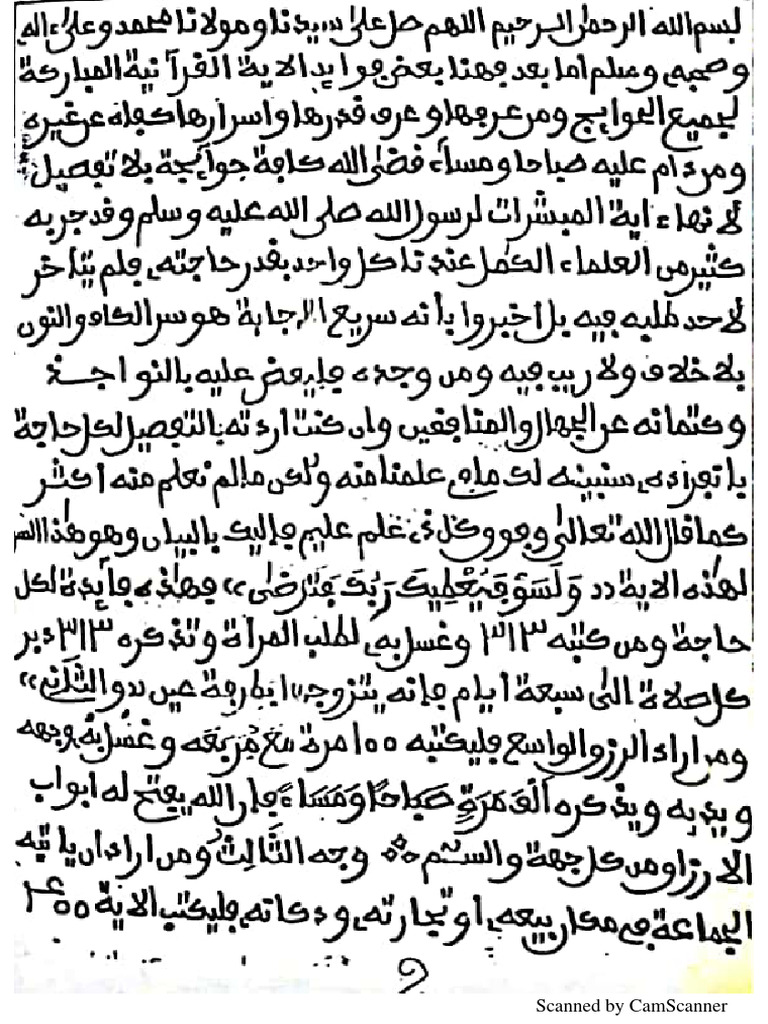 بسم الله الرحمن الرحيم اللهم صل على سيدنا ومولانا محمد وعلى اله
وصحبه وسلم اما بعد فهذا بعض فوايد الاية القرآنية المباركة
لجميع الحوايج ومن عرفها وعرف قدرها واسرارها كفاه عن غيره
ومن دام عليه صباحا ومساء فضى الله كافة حوايجة بلا تفصيل
لانهاء اية المبشرات لرسول الله صلى الله عليه وسلم وقد جربه
كثير من العلماء الكمل عندنا كل واحد بقدر حاجته فلم يتاخر
لاحد طلبه فيه بل اخبروا بأنه سريع الاجابة هو سر الكاف والنون
بلا خلاف ولا ريب فيه ومن وجده فليعض عليه بالنواجذ
وكتمانه عن الجهال والمنافقين وان كنت اردته بالتفصيل لكل حاجة
سنبينه لك ما علمنا منه ولكن مالم نعلم منه اكثر
كما قال الله تعالى وفوق كل ذي علم عليم فإليك بالبيان وهو هذا
لهذه الاية دد وَلَسَوْفَ يُعْطِيكَ رَبُّكَ فَتَرْضَى» فهذه فأيدة لكل
حاجة ومن كتبه ٣١٣ وغسل به لطلب المرأة وتذكره ٣١٣ دبر
كل صلاة الى سبعة ايام فانه يتزوج
ومن اراد الرزق الواسع فليكتبه ١٠٠ مرة مع مربعه وغسل به وجهه
ويديه ويذكره ألف مرة صباحًا ومساءً فإن الله يفتح له ابواب
الارزاق من كل جهة والسلام وجه الثالث ومن اراد ان ياتيه
الجماعة في مكان بيعه او تجارته ودكانه فليكتب الاية
Scanned by CamScanner